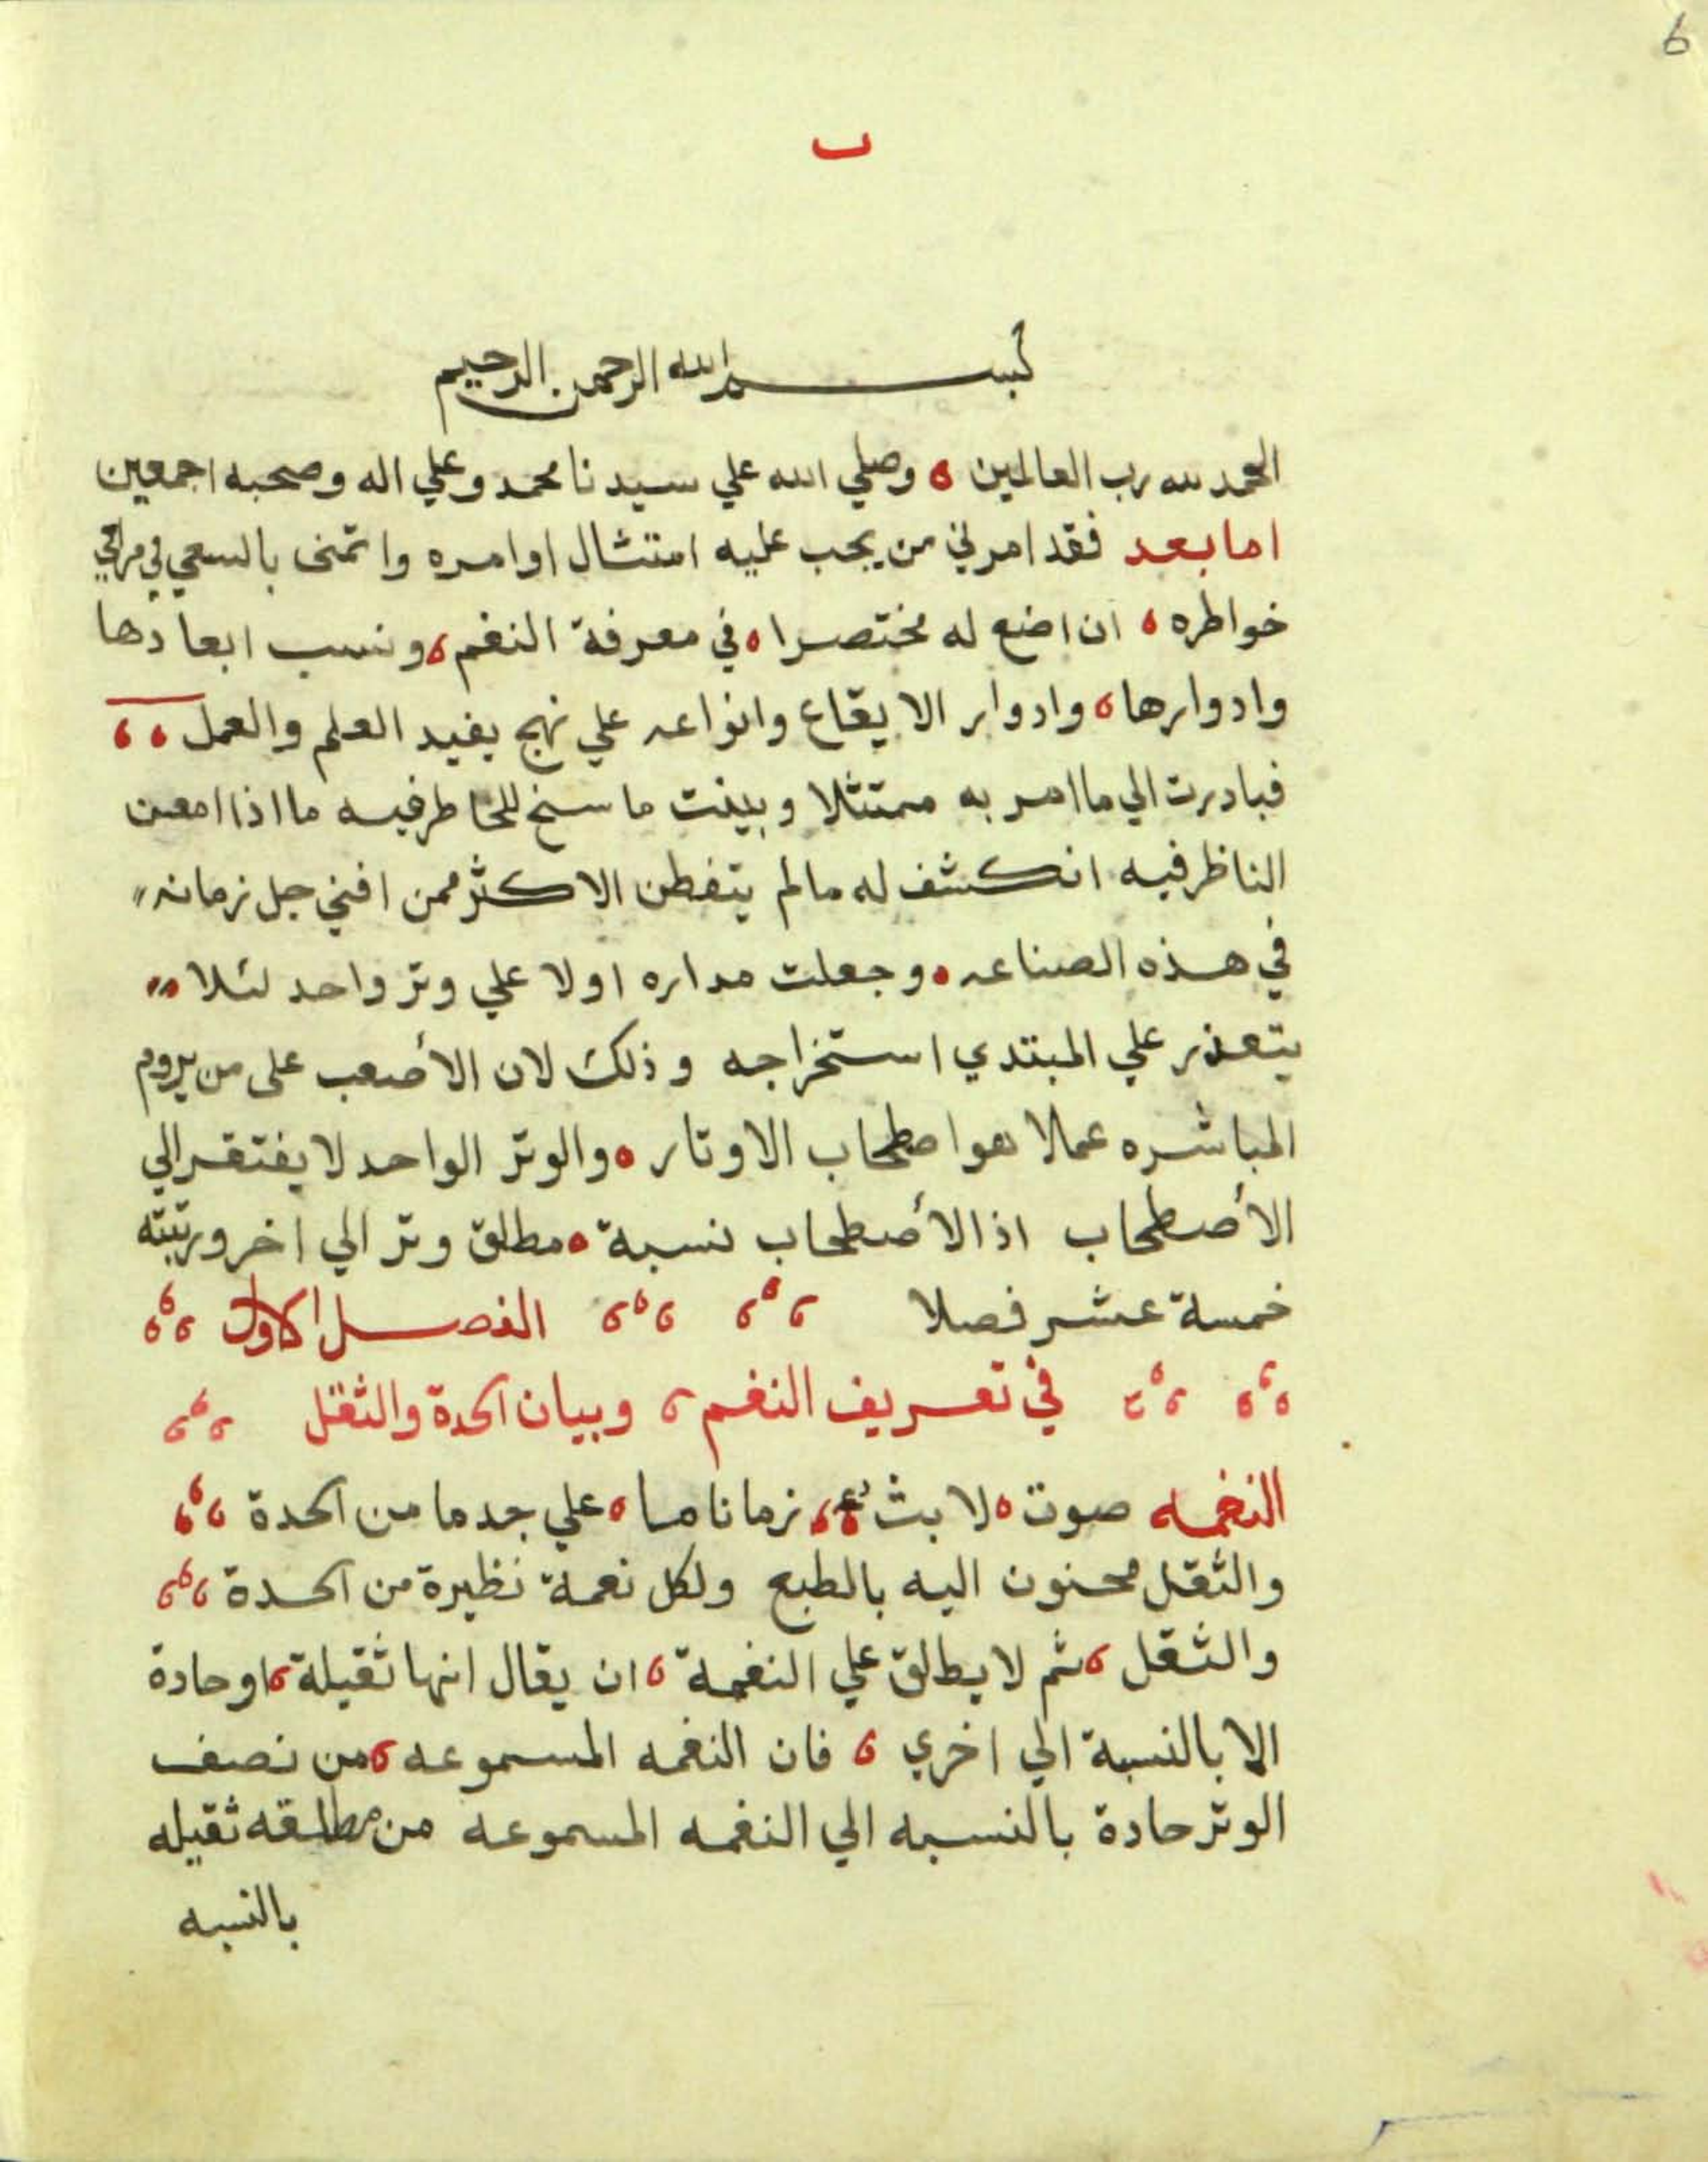 6
ب
بسم الله الرحمن الرحيم
الحمد لله رب العالمين، وصلي الله علي سيدنا محمد وعلي اله وصحبه اجمعين
اما بعد فقد امرني من يجب عليه امتثال اوامره واتمنى بالسعي في مراقي
خواطره، ان اضع له مختصرا، في معرفة النغم، ونسب ابعادها
وادوارها، وادوار الايقاع وانواعه علي نهج يفيد العلم والعمل،،
فبادرت الي ما امر به ممتثلا وبينت ما سنح للخاطر فيه ما اذا امعن
الناظر فيه انكشف له مالم يتفطن الاكثر ممن افني جل زمانه
في هذه الصناعه، وجعلت مداره اولا علي وتر واحد لئلا
يتعذر علي المبتدي استخراجه وذلك لان الأصعب على من يروم
المباشره عملا هو اصطحاب الاوتار، والوتر الواحد لا يفتقر الي
الأصطحاب اذ الأصطحاب نسبة، مطلق وتر الي اخر ورتبته
خمسة عشر فصلا الفصل الاول
في تعريف النغم، وبيان الحدة والثقل
النغمه صوت، لابث، زمانا ما، علي حد ما من الحدة
والثقل محنون اليه بالطبع ولكل نغمة نظيرة من الحدة
والثقل، ثم لا يطلق علي النغمة، ان يقال انها ثقيلة، او حادة
الا بالنسبة الي اخري، فان النغمه المسموعه، من نصف
الوتر حادة بالنسبه الي النغمه المسموعه من مطلقه ثقيله
بالنسبه